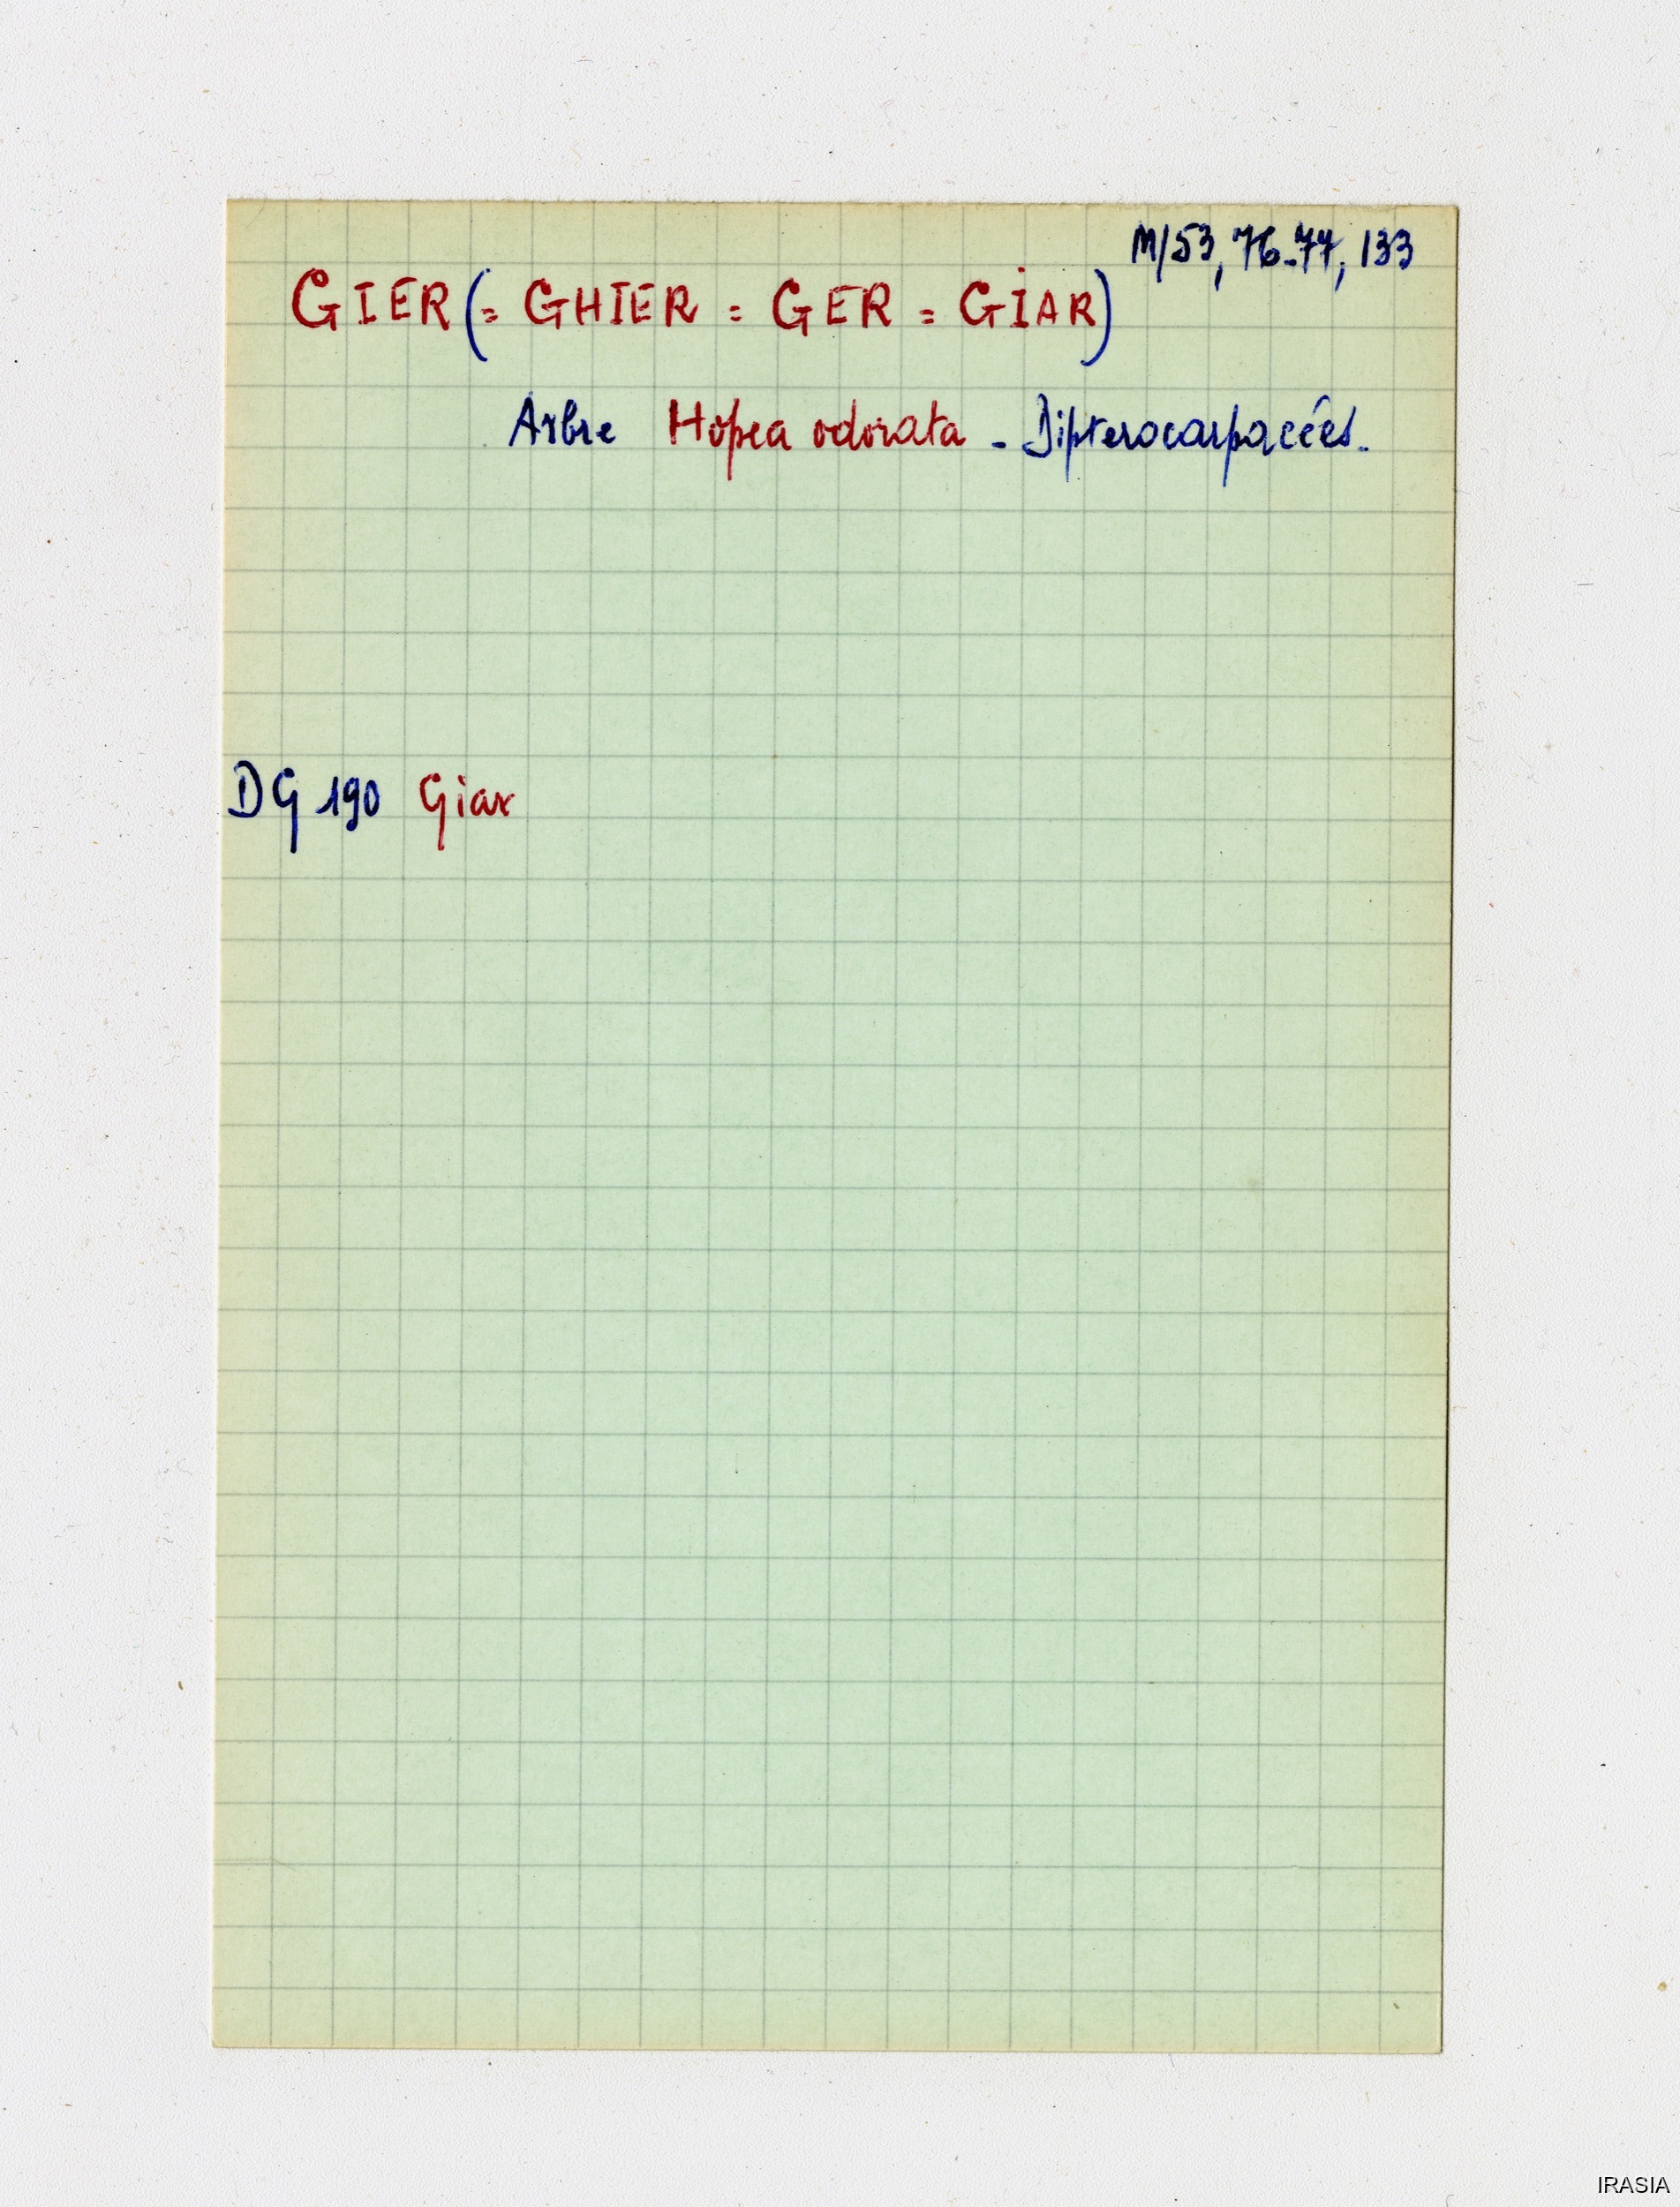 M/53, 76-77, 133
GIER (= GHIER = GER = GIAR)
Arbre Hopea odorata - Dipterocarpacées.
DG 190 Giar
IRASIA